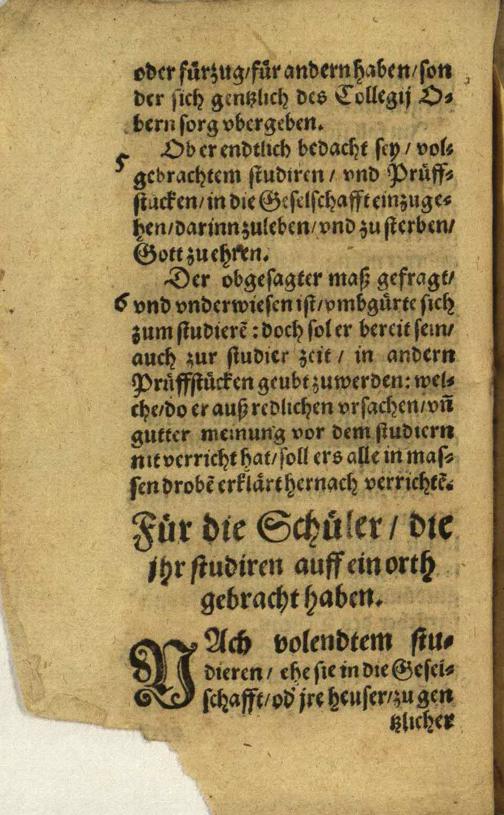 oder fürzug/für andern haben/son
der sich gentzlich des Collegij O⸗
bern sorg vbergeben.
5 Ob er endtlich bedacht sey/ vol⸗
gebrachtem studiren/ vnd Prüff⸗
stücken/in die Geselschafft einzuge⸗
hen/darinn zuleben/vnd zu sterben/
Gott zu ehren.
Der obgesagter maß gefragt/
6 vnd vnderwiesen ist/vmbgürte sich
zum studierē: doch sol er bereit sein/
auch zur studier zeit/ in andern
Prüffstücken geubt zuwerden: wel⸗
che/do er auß redlichen vrsachen/vn̄
gutter meinung vor dem studiern
nit verricht hat/soll ers alle in mas⸗
sen drobē erklärt hernach verrichtē.
Für die Schüler/ die
jhr studiren auff ein orth
gebracht haben.
NAch volendtem stu⸗
dieren/ ehe sie in die Gesel⸗
schafft/od̕ jre heuser/zu gen
tzlicher